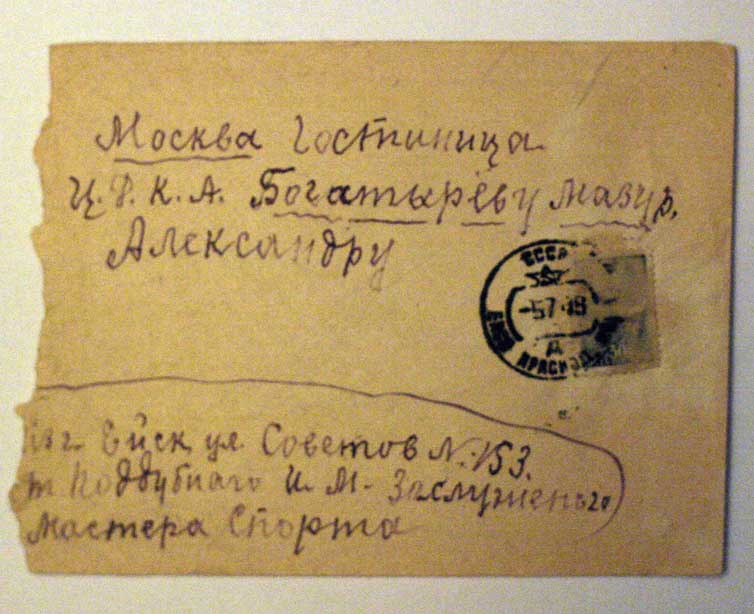 Москва Гостиница
Ц.Д.К.А. Богатырёву Мазур.
Александру
СССР
-5.7.49
Ейск ул Советов N. 153.
Поддубнаго И. М. Заслуженаго
Мастера Спорта